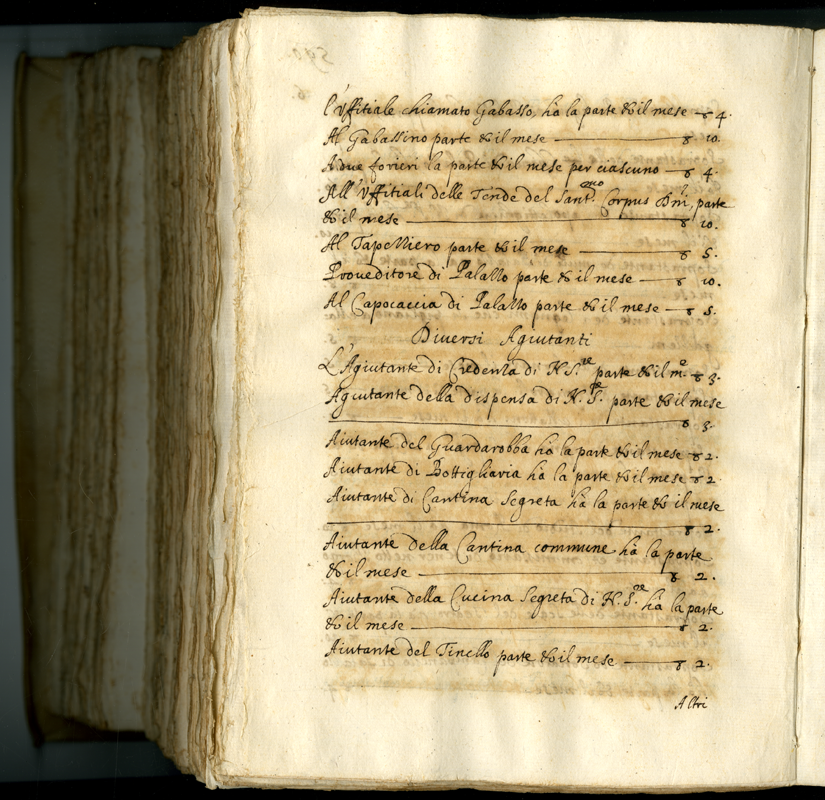 l'Vffitiale chiamato Gabasso, hà la parte & il mese — ▽ 4.
Al Gabassino parte & il mese — ▽ 10.
A due forieri la parte & il mese per ciascuno — ▽ 4.
All'Vffitiali delle Tende del Sant.mo Corpus Dnĩ, parte
& il mese — ▽ 10.
Al Tapezziero parte & il mese — ▽ 5.
Proueditore di Palazzo parte & il mese — ▽ 10.
Al Capocaccia di Palazzo parte & il mese — ▽ 5.
Diuersi Agiutanti
L'Agiutante di Credenza di N. S.re parte & il m.e ▽ 3.
Agiutante della dispensa di N. S.re parte & il mese
— ▽ 3.
Aiutante del Guardarobba hà la parte & il mese ▽ 2.
Aiutante di Bottigliaria hà la parte & il mese ▽ 2
Aiutante di Cantina Segreta hà la parte & il mese
— ▽ 2.
Aiutante della Cantina commune hà la parte
& il mese — ▽ 2.
Aiutante della Cucina Segreta di N. S.re hà la parte
& il mese — ▽ 2.
Aiutante del Tinello parte & il mese — ▽ 2.
Altri